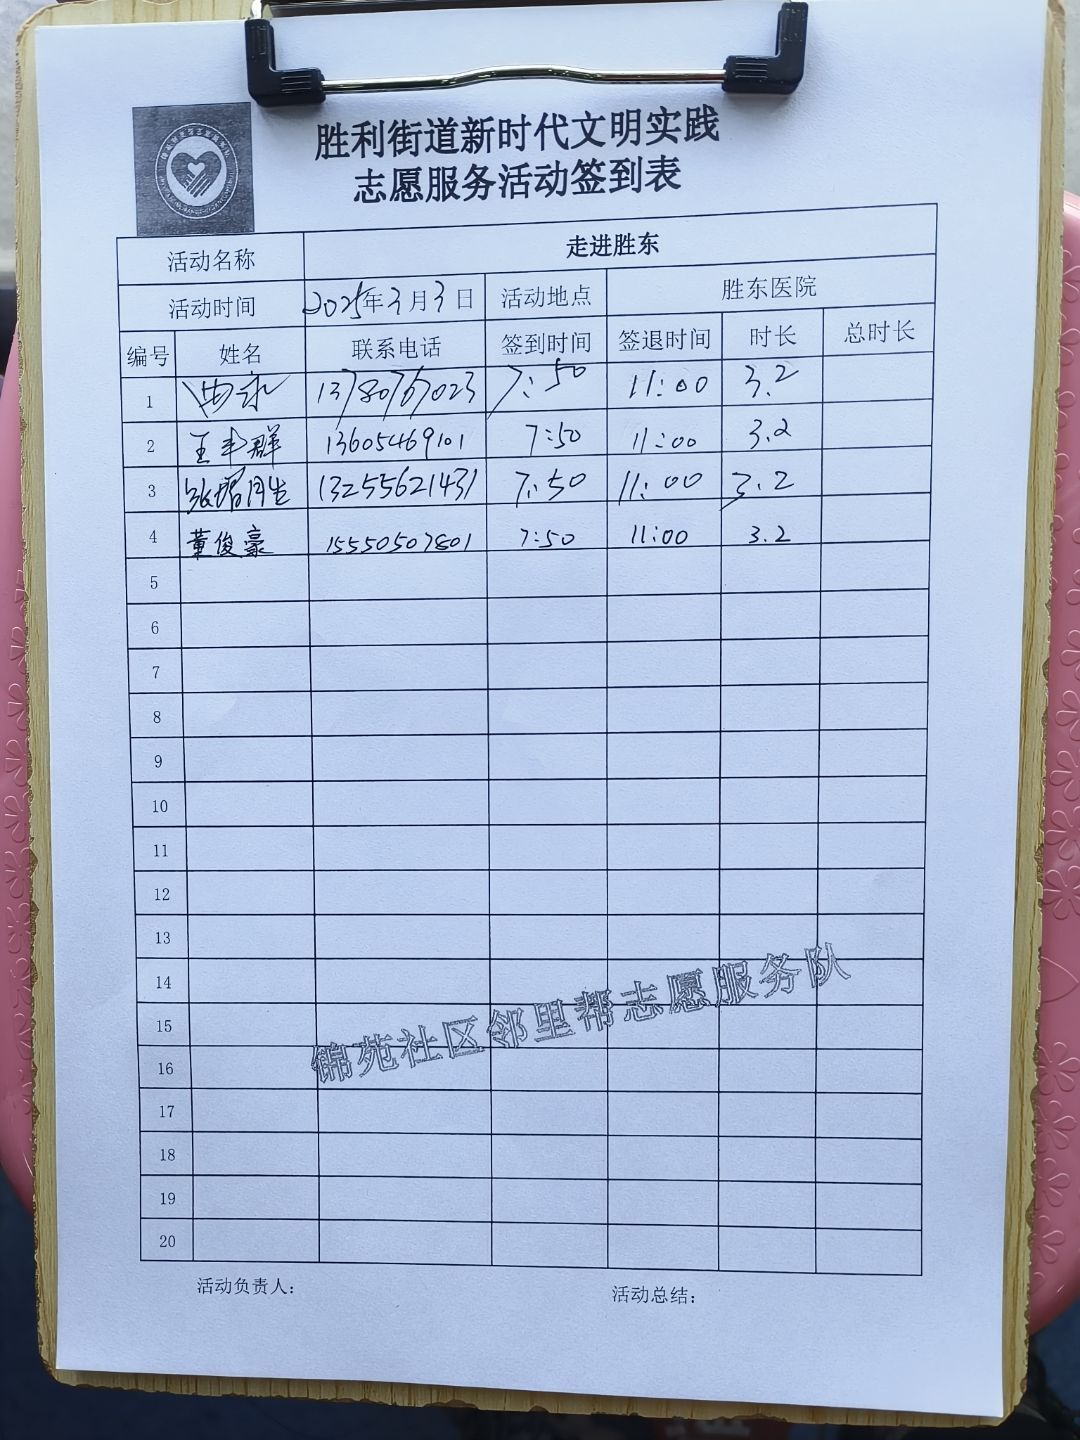 胜利街道新时代文明实践
志愿服务活动签到表
活动名称 走进胜东
活动时间 2025年3月3日 活动地点 胜东医院
编号 姓名 联系电话 签到时间 签退时间 时长 总时长
1 13780767023 7:50 11:00 3.2
2 王丰群 13605469101 7:50 11:00 3.2
3 13255621431 7:50 11:00 3.2
4 董俊豪 15550507801 7:50 11:00 3.2
5
6
7
8
9
10
11
12
13
14
15
16
17
18
19
20
锦苑社区邻里帮志愿服务队
活动负责人： 活动总结：